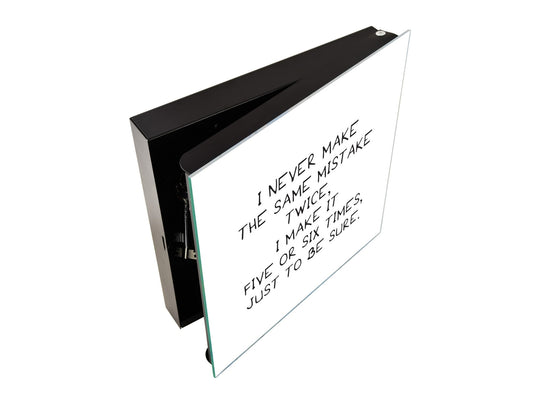 I NEVER MAKE
THE SAME MISTAKE
TWICE,
I MAKE IT
FIVE OR SIX TIMES,
JUST TO BE SURE.